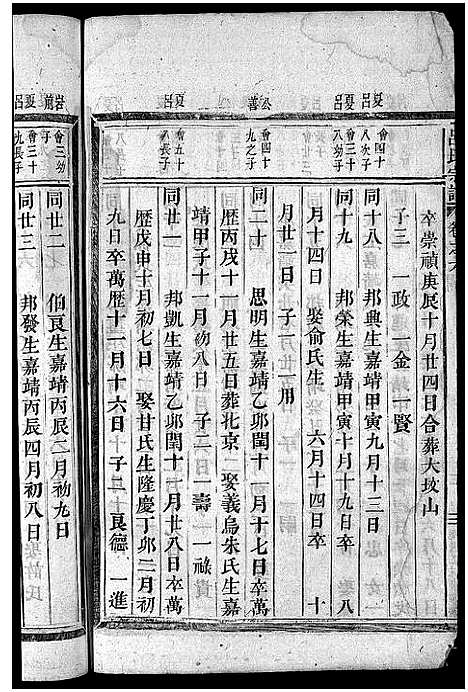 呂氏宗譜 卷之六
卒崇禎庚辰十月廿四日合葬大坟山
子三 一政 一金 一賢
夏呂
會四十八次子
同十八 邦興生嘉靖甲寅九月十三日
夏呂
會三十八幼子
同十九 邦榮生嘉靖甲寅十月十九日卒 八
月十四日 娶俞氏生 六月十四日卒 十
月廿一日 子一 一用
公善
會四十九之子
同二十 思明生嘉靖乙卯閏十一月十七日卒萬
歷丙戌十一月廿五日葬北京 娶義烏朱氏生嘉
靖甲子十一月初八日 子二 一壽 一祿
夏呂
會五十八長子
同廿一 邦凱生嘉靖乙卯閏十一月廿八日卒萬
歷戊申十月初七日 娶甘氏生隆慶丁卯二月初
九日卒萬歷十二月十六日 子二 良德 一進
岩前
會三幼子
同廿二 伯良生嘉靖丙辰二月初九日
夏呂
會三十九長子
同廿三 邦發生嘉靖丙辰四月初八日